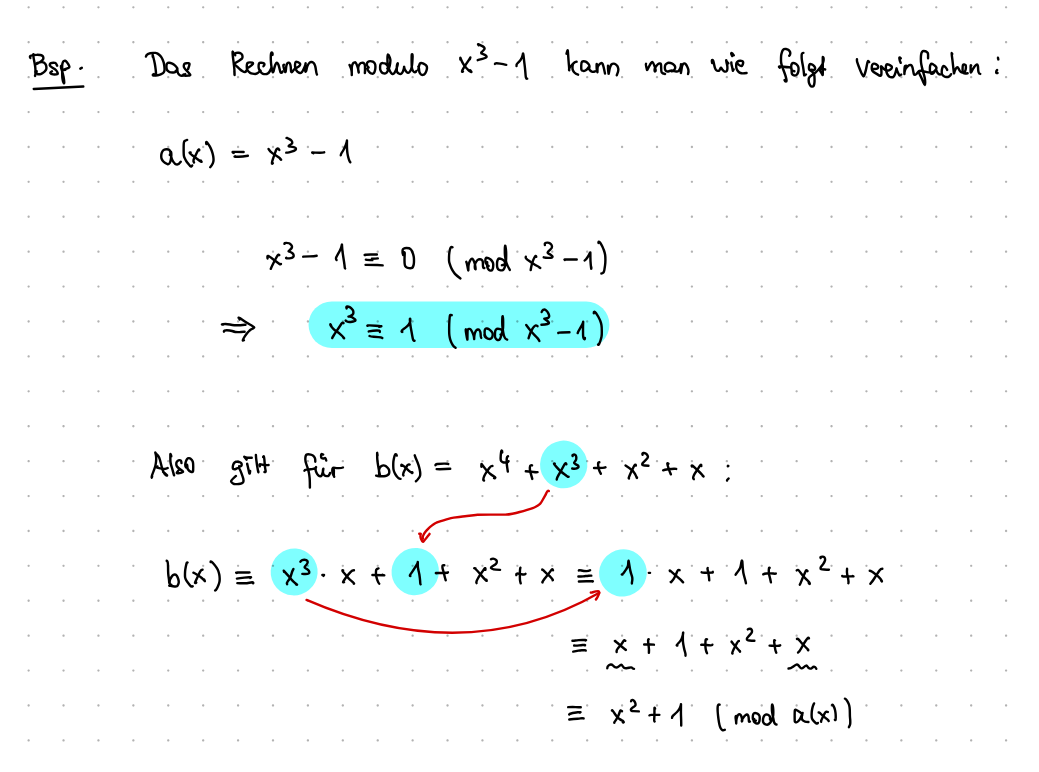 Bsp. Das Rechnen modulo x³ - 1 kann man wie folgt vereinfachen:
a(x) = x³ - 1
x³ - 1 ≡ 0 (mod x³ - 1)
⇒ x³ ≡ 1 (mod x³ - 1)
Also gilt für b(x) = x⁴ + x³ + x² + x :
b(x) ≡ x³ · x + 1 + x² + x ≡ 1 · x + 1 + x² + x
≡ x + 1 + x² + x
≡ x² + 1 (mod a(x))